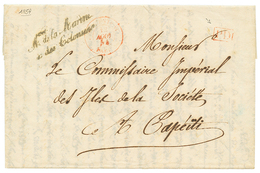 Mre de la Marine
et des Colonies
Monsieur
Le Commissaire Impérial
des Iles de la Société
à Tapéiti